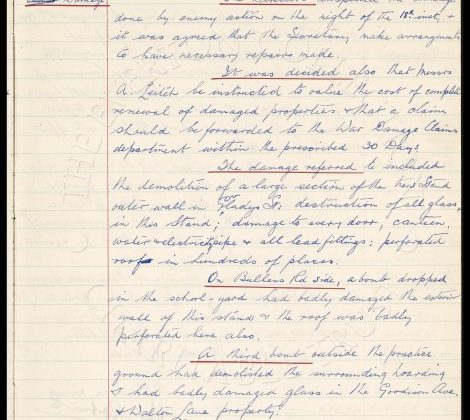 Damage
done by enemy action on the night of the 18th inst, &
it was agreed that the Secretary make arrangements
to have necessary repairs made.
It was decided also that Messrs
A. Leitch be instructed to value the cost of complete
renewal of damaged properties & that a claim
should be forwarded to the War Damage Claims
department within the prescribed 30 Days.
The damage referred to included
the demolition of a large section of the new Stand
outer wall in Gladys St; destruction of all glass
in this Stand; damage to every door, canteen,
water & electricity pipe & all lead fittings; perforated
roof in hundreds of places.
On Bullens Rd side, a bomb dropped
in the school-yard had badly damaged the exterior
wall of this stand & the roof was badly
perforated here also.
A third bomb outside the practice
ground had demolished the surrounding hoarding
& had badly damaged glass in the Goodison Ave.
& Walton Lane property.